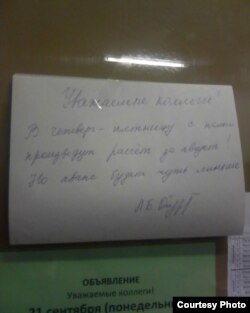 Уважаемые коллеги!
В четверг - пятницу с нами
произведут расчёт за август!
Но аванс будет чуть
ОБЪЯВЛЕНИЕ
Уважаемые коллеги!
21 сентября (понедельн
Courtesy Photo